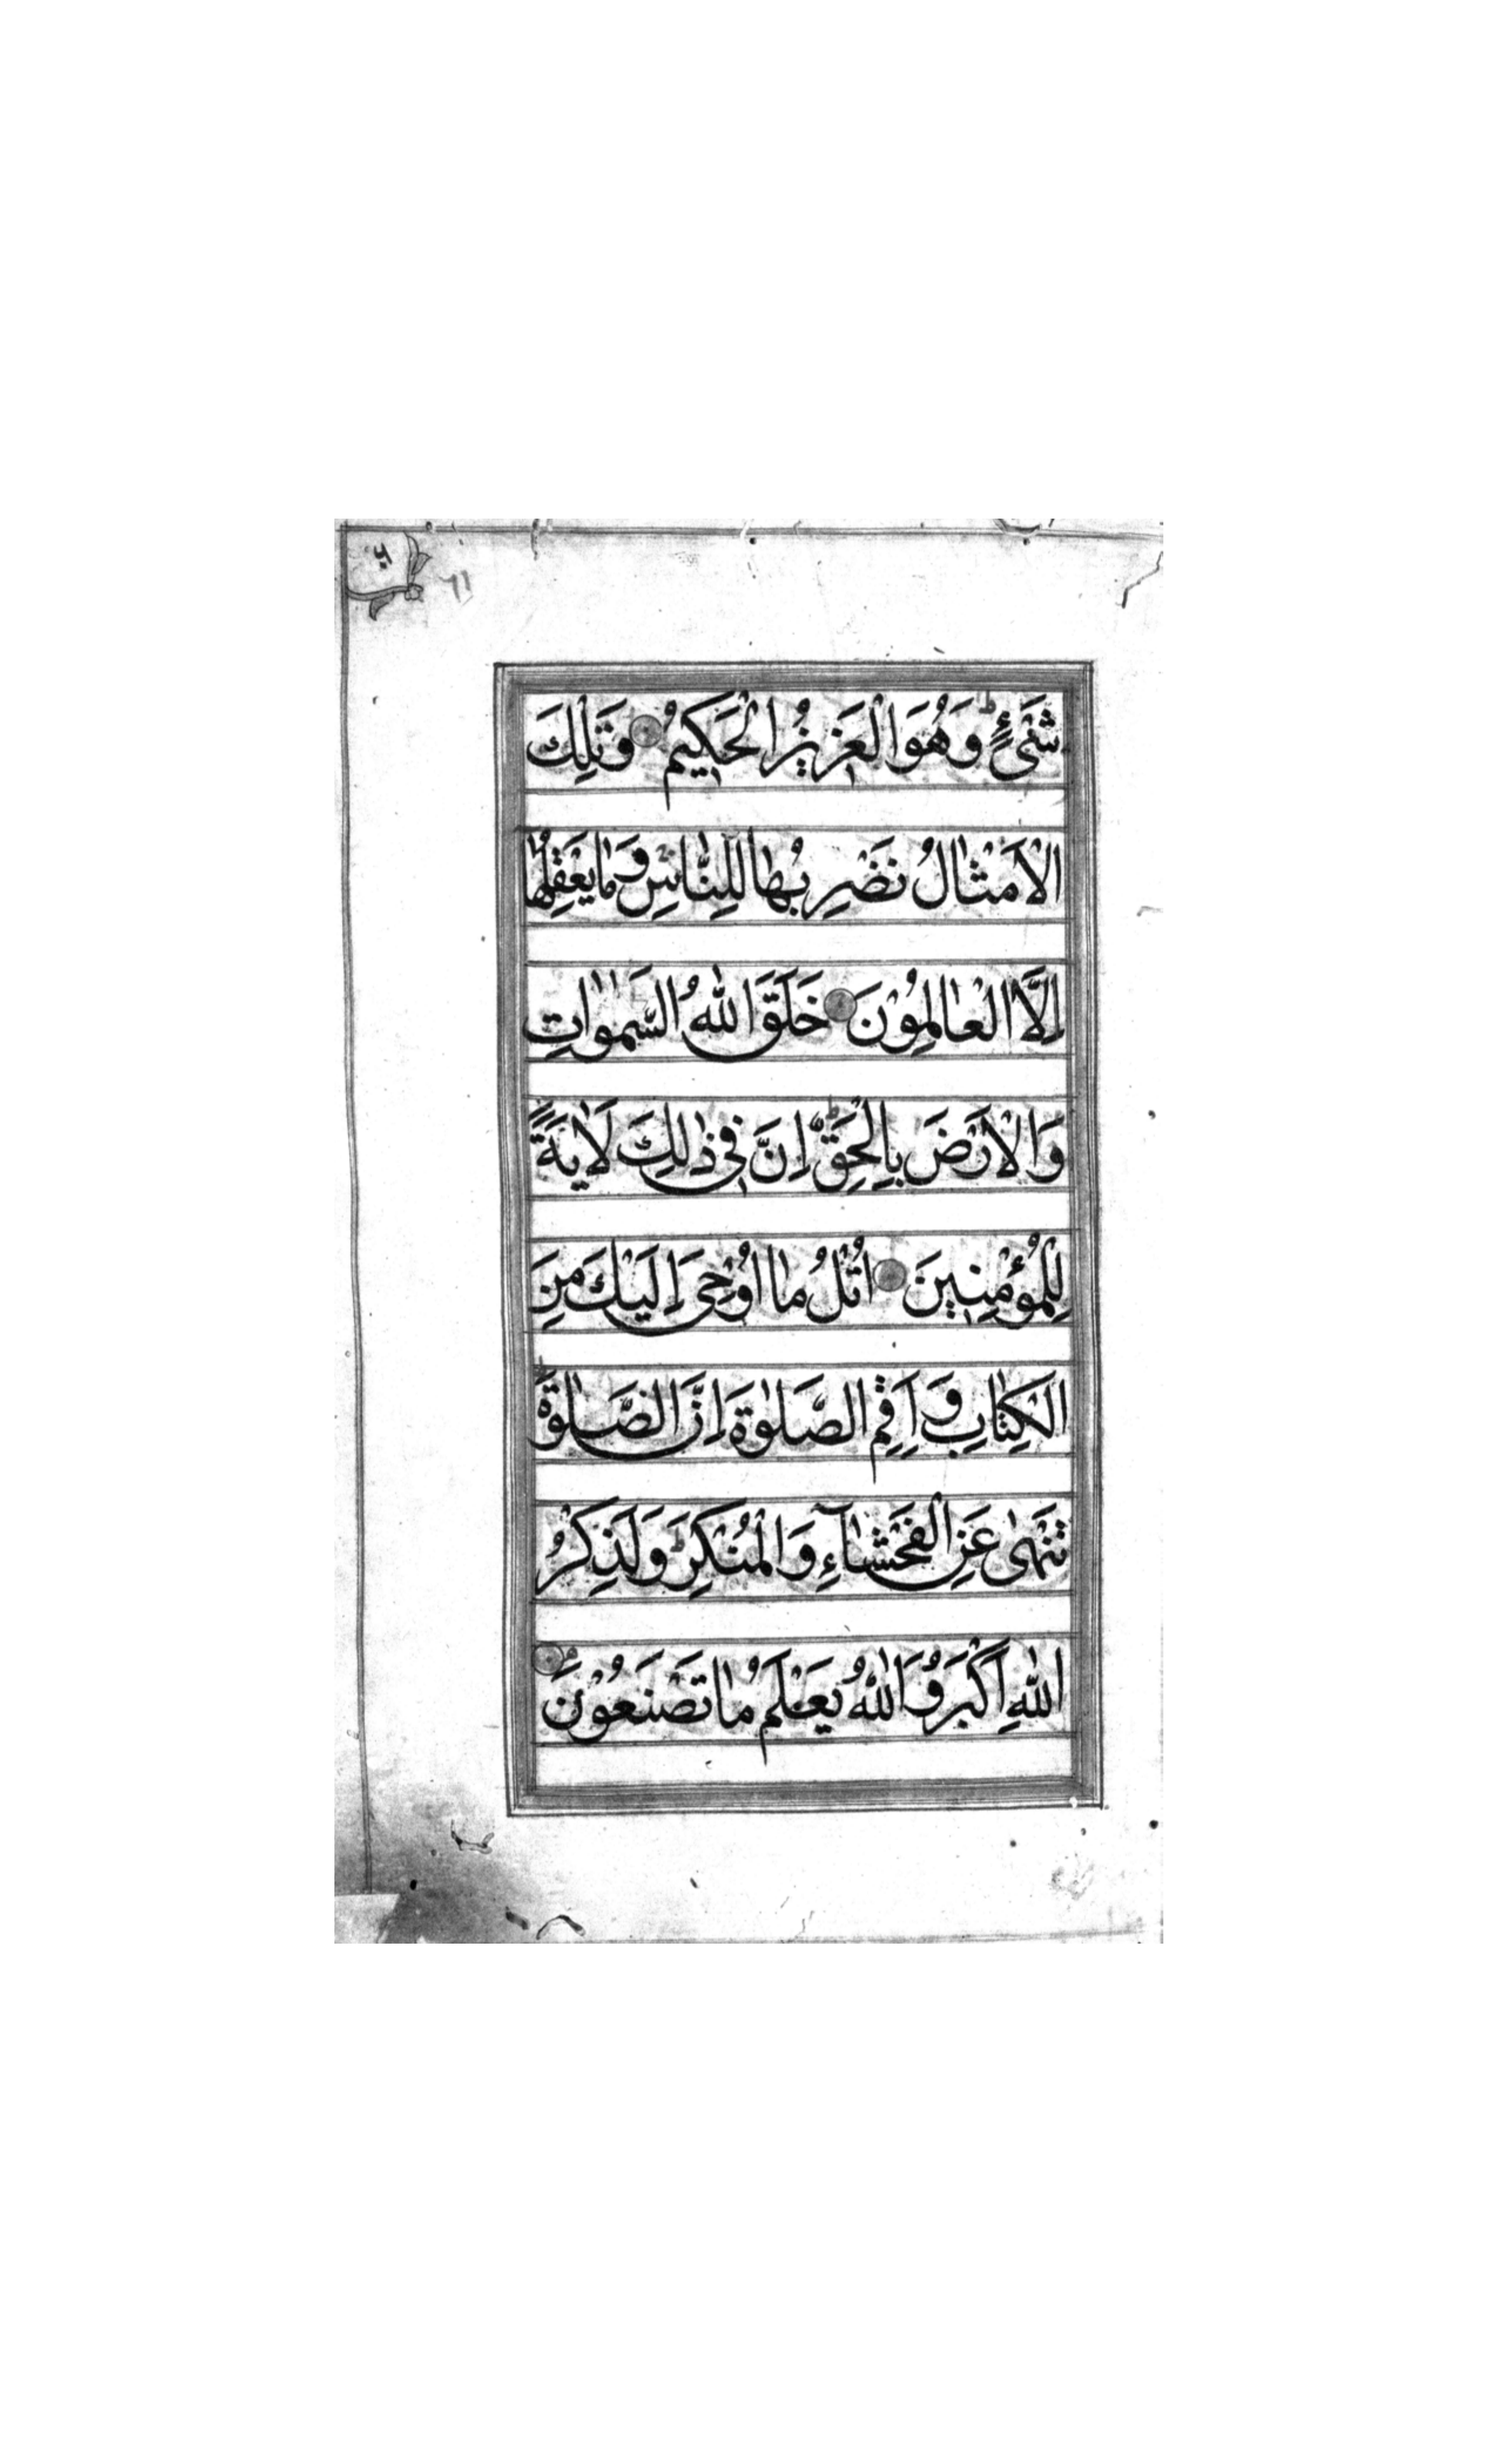 شَیْءٍ ؕ وَهُوَالْعَزِيْزُالْحَكِيْمُ وَتِلْكَ
الْاَمْثَالُ نَضْرِبُهَا لِلنَّاسِ وَمَا يَعْقِلُهَا
اِلَّا الْعَالِمُوْنَ خَلَقَ اللّٰهُ السَّمٰوَاتِ
وَالْاَرْضَ بِالْحَقِّ ؕ اِنَّ فِیْ ذٰلِكَ لَاٰيَةً
لِلْمُؤْمِنِيْنَ اُتْلُ مَا اُوْحِیَ اِلَيْكَ مِنَ
الْكِتَابِ وَاَقِمِ الصَّلٰوةَ اِنَّ الصَّلٰوةَ
تَنْهٰی عَنِ الْفَحْشَآءِ وَالْمُنْكَرِ ؕ وَلَذِكْرُ
اللّٰهِ اَكْبَرُ وَاللّٰهُ يَعْلَمُ مَا تَصْنَعُوْنَ